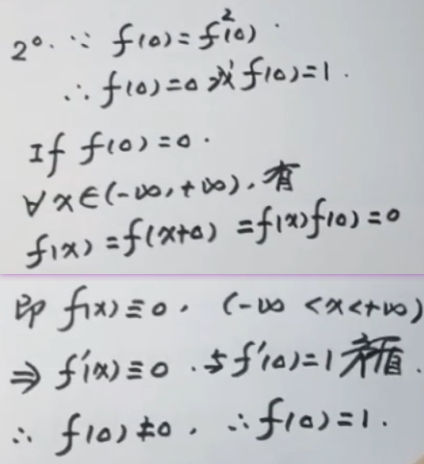 2°. ∵ f(0)=f²(0).
∴ f(0)=0 或 f(0)=1.
If f(0)=0.
∀x∈(-∞,+∞),有
f(x)=f(x+0)=f(x)f(0)=0
即 f(x)≡0. (-∞<x<+∞)
⇒ f'(x)≡0.与f'(0)=1矛盾.
∴ f(0)≠0. ∴ f(0)=1.